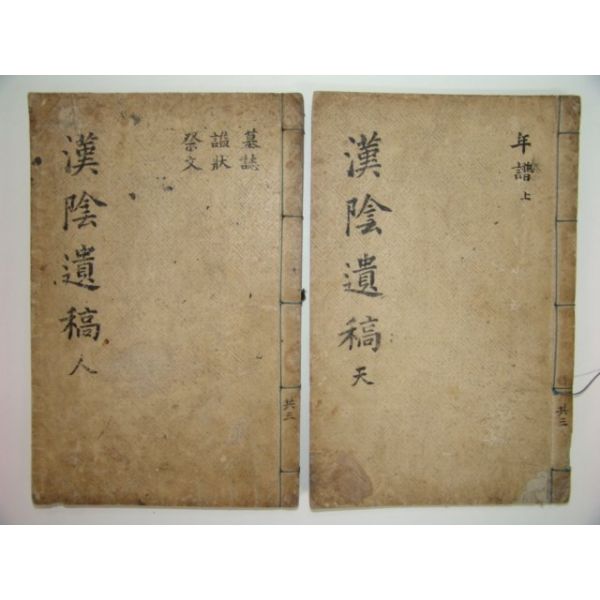 年譜上
漢陰遺稿天
共三
墓誌
諡狀
祭文
漢陰遺稿人
共三